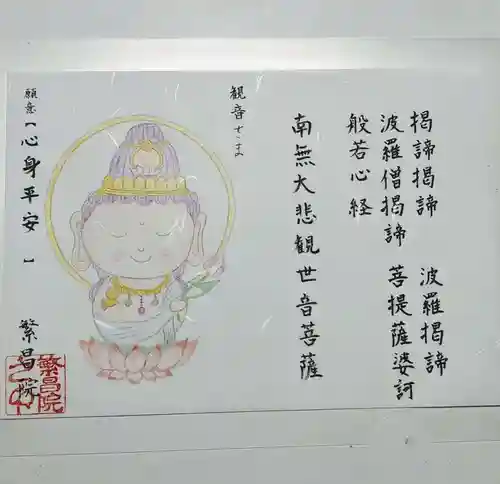 揭諦揭諦 波羅揭諦
波羅僧揭諦 菩提薩婆訶
般若心経
南無大悲觀世音菩薩
観音さま
願意【心身平安】 繁昌院
繁昌院